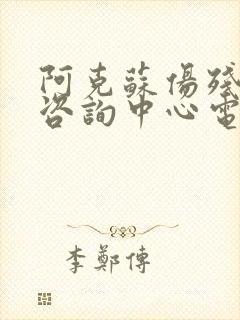 阿克蘇傷殘
咨詢中心電
李鄭傳